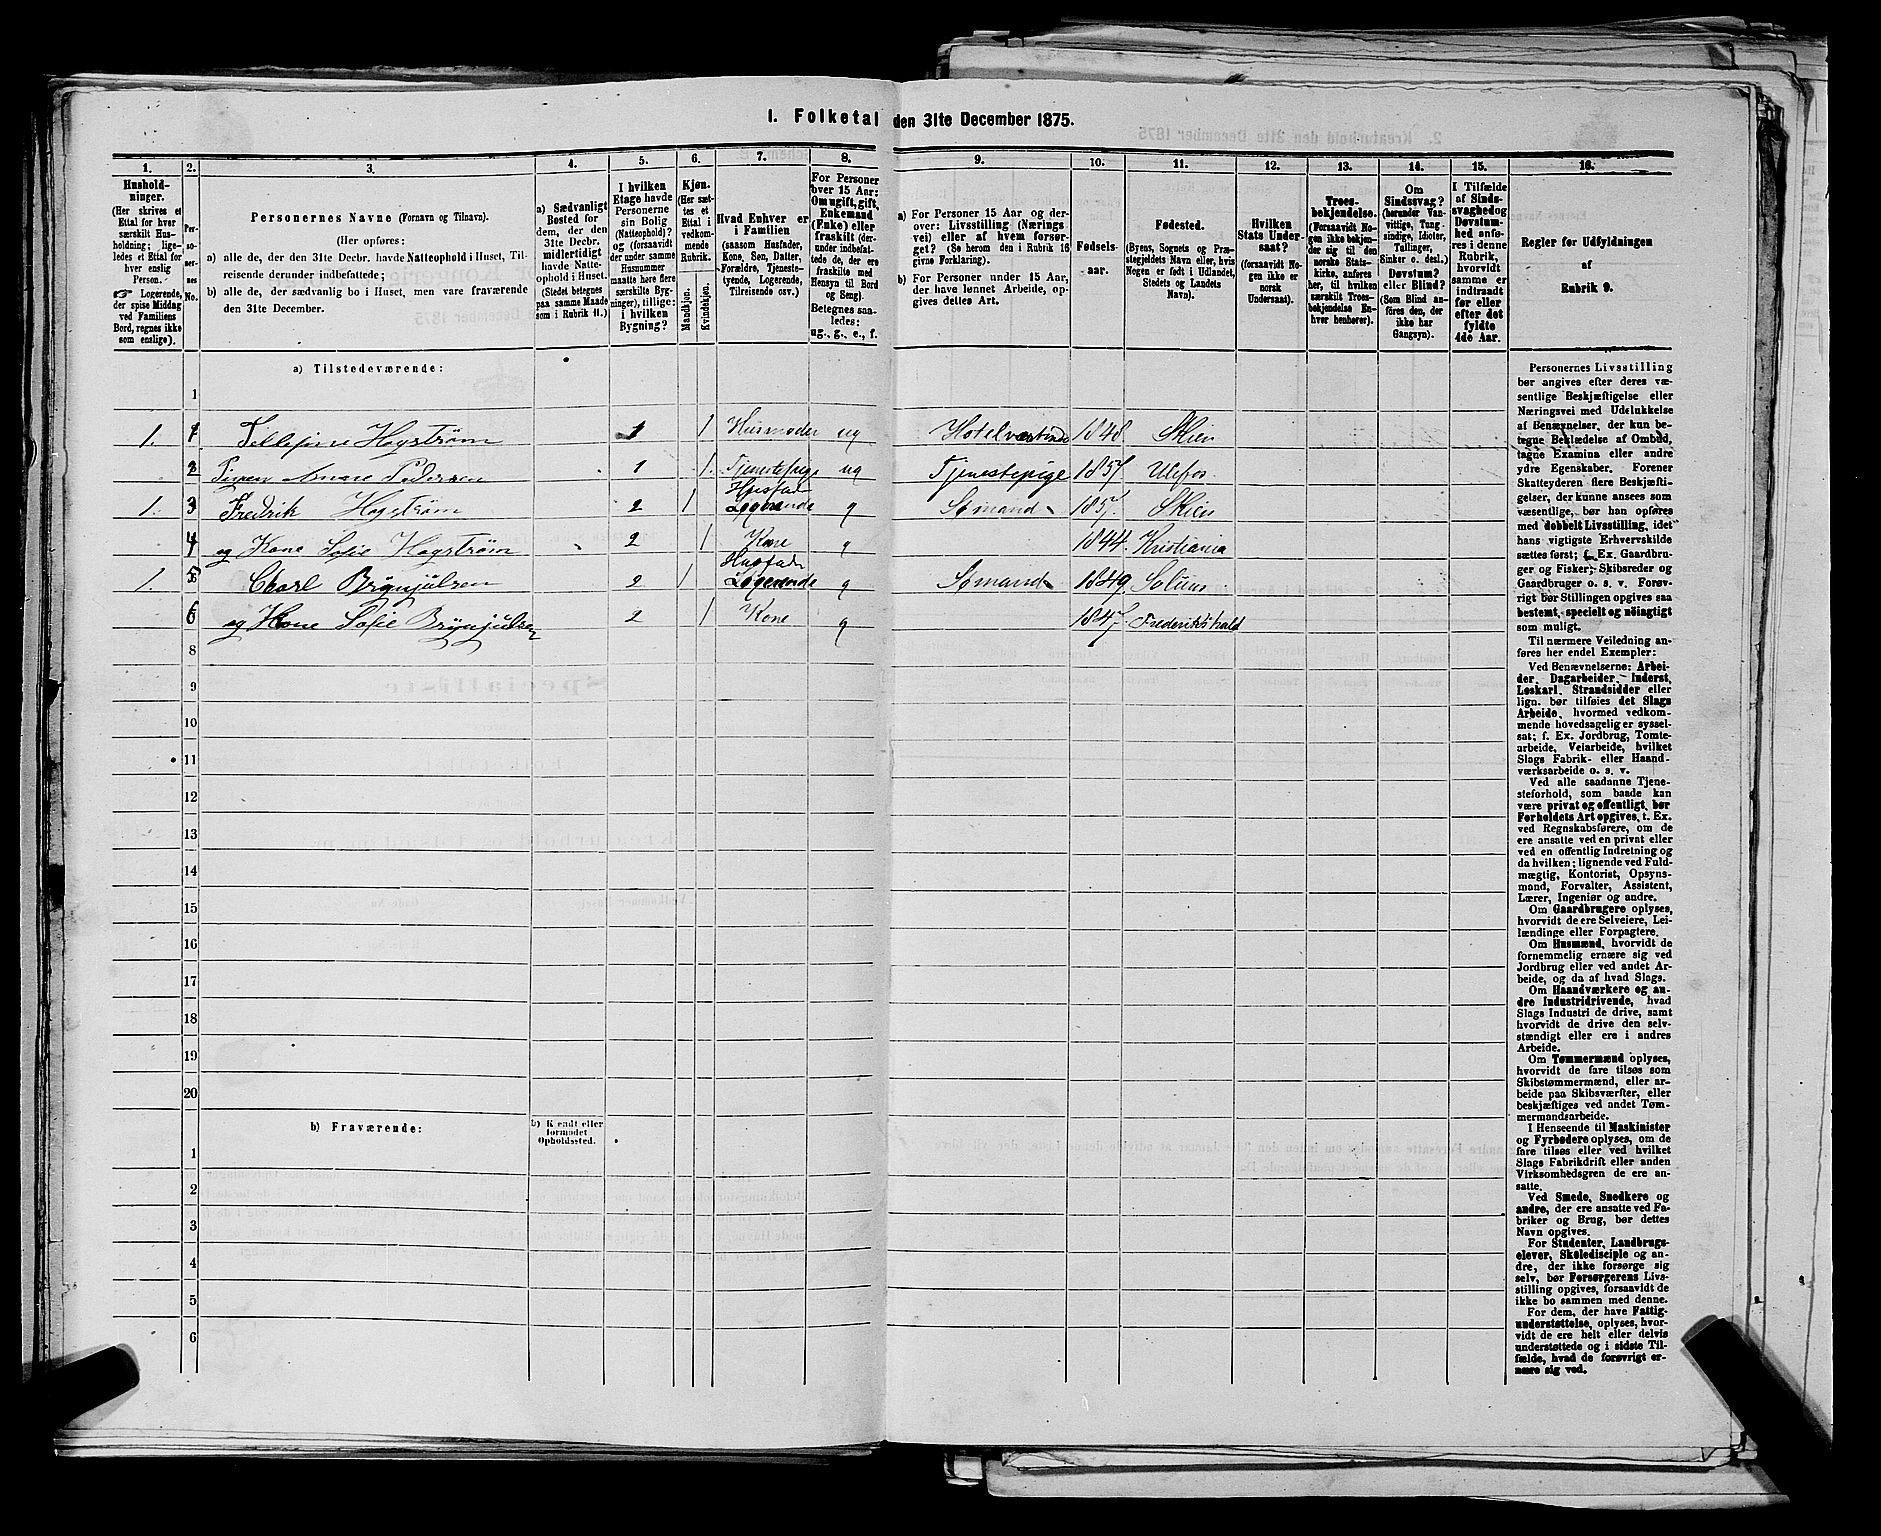 I. Folketal den 31te December 1875.
1.
2.
3.
4.
5.
6.
7.
8.
9.
10.
11.
12.
13.
14.
15.
16.
Hushold-
ninger.
(Her skrives et
Ettal for hver
særskilt Hus-
holdning; lige-
ledes et Ettal for
hver enslig
Person.
☞ Logerende,
der spise Middag
ved Familiens
Bord, regnes ikke
som enslige).
Per-
so-
ner-
nes
No.
Personernes Navne (Fornavn og Tilnavn).
(Her opføres:
a) alle de, der den 31te Decbr. havde Natteophold i Huset, Til-
reisende derunder indbefattede;
b) alle de, der sædvanlig bo i Huset, men vare fraværende
den 31te December.
a) Sædvanligt
Bosted for
dem, der den
31te Decbr.
midlertidigt
havde Natte-
ophold i Huset.
(Stedet betegnes
paa samme Maade
som i Rubrik 11.)
I hvilken
Etage havde
Personerne
sin Bolig
(Natteophold)?
og (forsaavidt
der under samme
Husnummer
maatte høre flere
særskilte Byg-
ninger), tillige:
i hvilken
Bygning?
Kjøn.
(Her sæt-
tes et
Ettal i
vedkom-
mende
Rubrik.
Mandkjøn.
Kvindekjøn.
Hvad Enhver er
i Familien
(saasom Husfader,
Kone, Søn, Datter,
Forældre, Tjeneste-
tyende, Logerende,
Tilreisende osv.)
For Personer
over 15 Aar:
Om ugift, gift,
Enkemand
(Enke) eller
fraskilt (der-
under indbefat-
tede de, der ere
fraskilte med
Hensyn til Bord
og Seng).
Betegnes saa-
ledes:
ug., g., e., f.
a) For Personer 15 Aar og der-
over: Livsstilling (Nærings
vei) eller af hvem forsør-
get? (Se herom den i Rubrik 16
givne Forklaring).
b) For Personer under 15 Aar,
der have lønnet Arbeide, op-
gives dettes Art.
Fødsels-
aar.
Fødested.
(Byens, Sognets og Præ-
stegjeldets Navn eller, hvis
Nogen er født i Udlandet,
Stedets og Landets
Navn).
Hvilken
Stats Under-
saat?
(forsaavidt No-
gen ikke er
norsk
Undersaat).
Troes-
bekjendelse.
(Forsaavidt No-
gen ikke bekjen-
der sig til den
norske Stats-
kirke, anføres
her, til hvilken
særskilt Troes-
bekjendelse En-
hver henhører).
Om
Sindssvag?
(herunder Van-
vittige, Tung-
sindige, Idioter,
Tullinger,
Sinker o. desl.)
Døvstum?
eller Blind?
(Som Blind an-
føres den, der
ikke har
Gangsyn).
I Tilfælde
af Sinds-
svaghed og
Døvstum-
hed anfø-
res i denne
Rubrik,
hvorvidt
samme er
indtraadt
før eller
efter det
fyldte
4de Aar.
Regler for Udfyldningen
af
Rubrik 9.
a) Tilstedeværende:
1
1. 1 Tellefine Hogstrøm 1 1 Husmoder ug Hotelvertinde 1848. Skien
2 Anne Pedersen 1 1. Tjenestepige ug Tjenestepige 1857. Ulefos.
Husfad
1. 3 Fredrik Hogstrøm 2 1 Logerende g Sømand 1857. Skien
4 og Kone Sofie Hogstrøm 2 1 Kone g 1844. Kristiania
Husfad
1. 5 Charl Brynjulsen 2 1 Logerende g Sømand 1849. Solum
6 og Kone Sofie Brynjulsen 2 1 Kone g 1847. Frederikshald
8
9
10
11
12
13
14
15
16
17
18
19
20
b) Fraværende:
b) Kjendt eller
formodet
Opholdssted.
1
2
3
4
5
6
Personernes Livsstilling
bør angives efter deres væ-
sentlige Beskjæftigelse eller
Næringsvei med Udelukkelse
af Benævnelser, der kun be-
tegne Beklædelse af Ombud,
tagne Examina eller andre
ydre Egenskaber. Forener
Skatteyderen flere Beskjæfti-
gelser, der kunne ansees som
væsentlige, bør han opføres
med dobbelt Livsstilling, idet
hans vigtigste Erhvervskilde
sættes først; f. Ex. Gaardbru-
ger og Fisker; Skibsreder og
Gaardbruger o. s. v. Forøv-
rigt bør Stillingen opgives saa
bestemt, specielt og nøiagtigt
som muligt.
Til nærmere Veiledning an-
føres her endel Exempler:
Ved Benævnelserne: Arbei-
der, Dagarbeider, Inderst,
Løskarl, Strandsidder eller
lign. bør tilføies det Slags
Arbeide, hvormed vedkom-
mende hovedsagelig er syssel-
sat; f. Ex. Jordbrug, Tomte-
arbeide, Veiarbeide, hvilket
Slags Fabrik- eller Haand-
værksarbeide o. s. v.
Ved alle saadanne Tjene-
steforhold, som baade kan
være privat og offentligt, bør
Forholdets Art opgives, t. Ex.
ved Regnskabsførere, om de
ere ansatte ved en privat eller
ved en offentlig Indretning og
da hvilken; lignende ved Fuld-
mægtig, Kontorist, Opsyns-
mand, Forvalter, Assistent,
Lærer, Ingeniør og andre.
Om Gaardbrugere oplyses,
hvorvidt de ere Selveiere, Lei-
lændinge eller Forpagtere.
Om Husmænd, hvorvidt de
fornemmelig ernære sig ved
Jordbrug eller ved andet Ar-
beide, og da af hvad Slags.
Om Haandværkere og an-
dre Industridrivende, hvad
Slags Industri de drive, samt
hvorvidt de drive den selv-
stændigt eller ere i andres
Arbeide.
Om Tømmermænd oplyses,
hvorvidt de fare tilsøs som
Skibstømmermænd, eller ar-
beide paa Skibsværfter, eller
beskjæftiges ved andet Tøm-
mermandsarbeide.
I Henseende til Maskinister
og Fyrbødere oplyses, om de
fare tilsøs eller ved hvilket
Slags Fabrikdrift eller anden
Virksomhedsgren de ere an-
satte.
Ved Smede, Snedkere og
andre, der ere ansatte ved Fa-
briker og Brug, bør dettes
Navn opgives.
For Studenter, Landbrugs-
elever, Skoledisciple og an-
dre, der ikke forsørge sig
selv, bør Forsørgerens Livs-
stilling opgives, forsaavidt de
ikke bo sammen med denne.
For dem, der have Fattig-
understøttelse, oplyses, hvor-
vidt de ere helt eller delvis
understøttede og i sidste Til-
fælde, hvad de forøvrigt er-
nære sig ved.